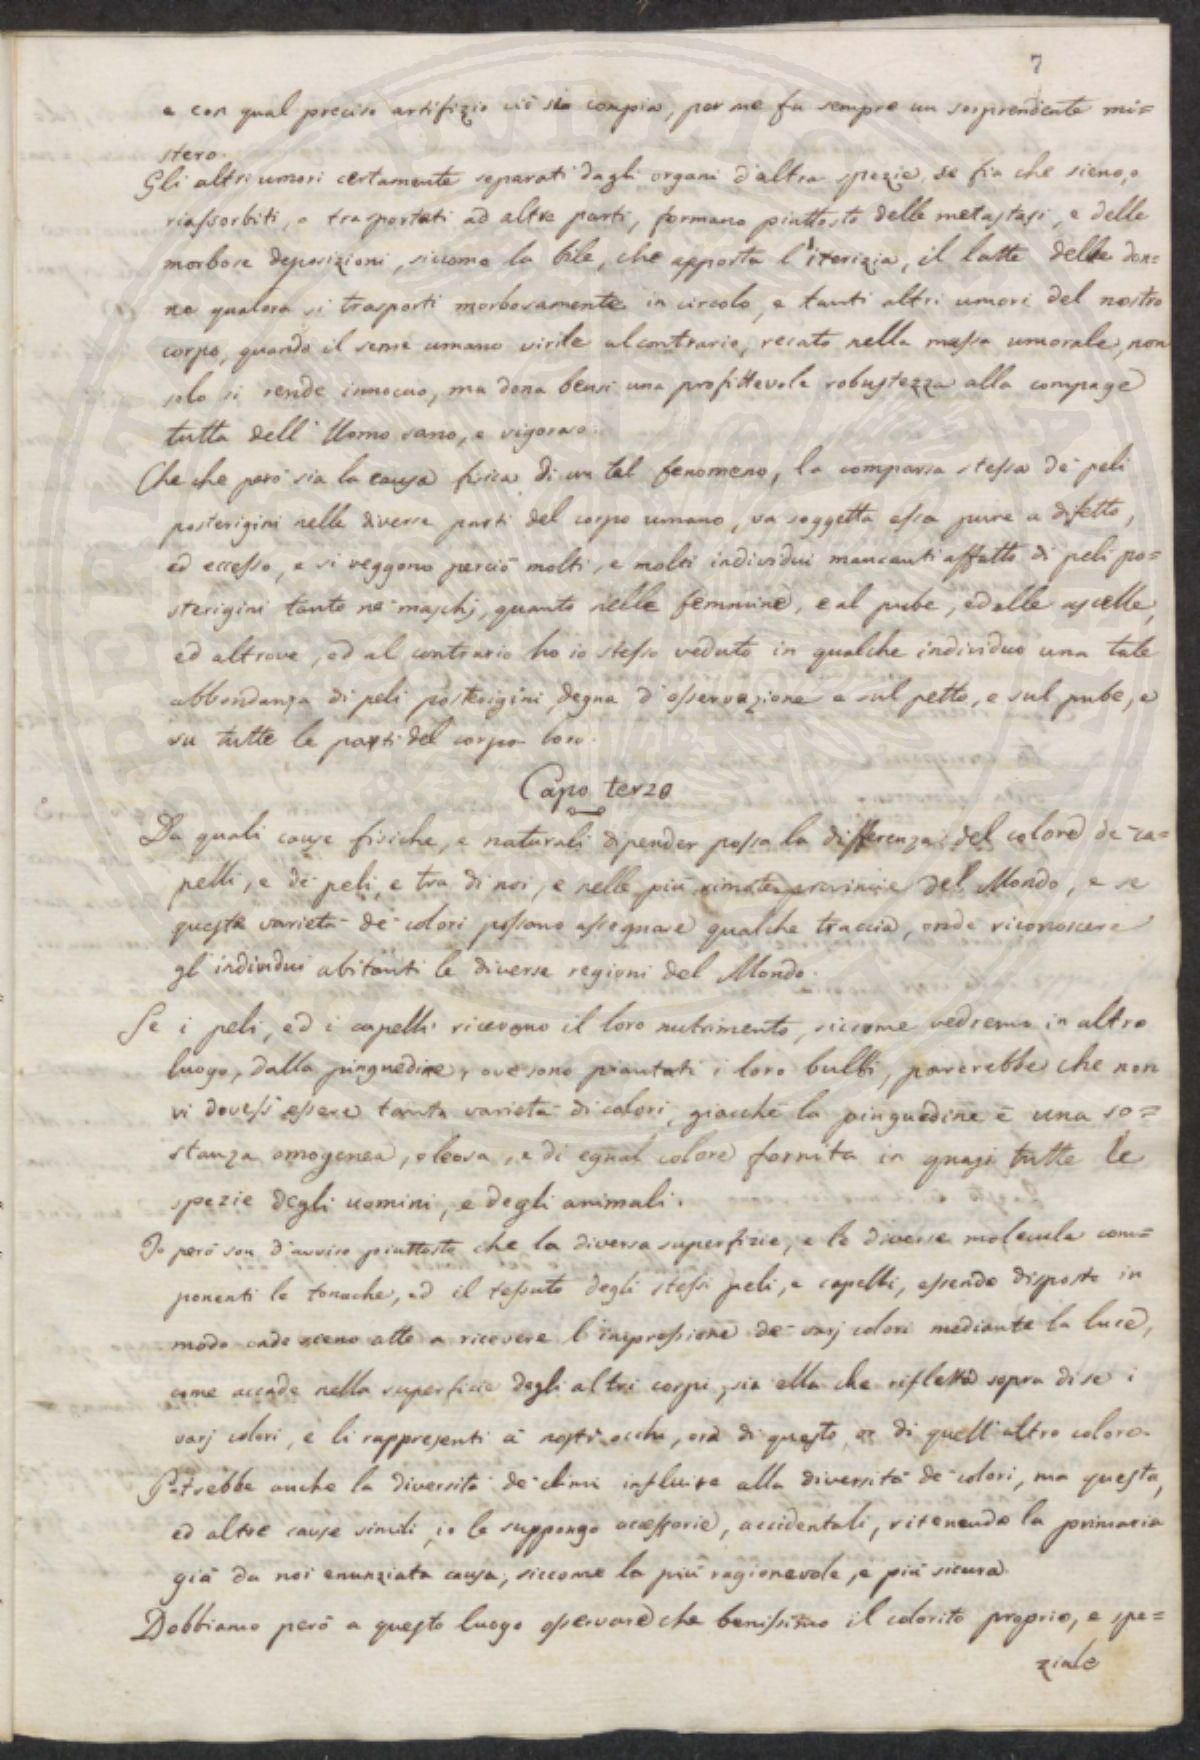 7
e con qual preciso artifizio ciò sia compia, per me fu sempre un sorprendente mi=
stero.
Gli altri umori certamente separati dagli organi d'altra spezie, se fia che sieno, o
riassorbiti, o trasportati ad altre parti, formano piuttosto delle metastasi, e delle
morbose deposizioni, siccome la bile, che apporta l'iterizia, il latte delle don=
ne qualora si trasporti morbosamente in circolo, e tanti altri umori del nostro
corpo, quando il seme umano virile al contrario, recato nella massa umorale, non
solo si rende innocuo, ma dona bensi una profittevole robustezza alla compage
tutta dell'Uomo sano, e vigoroso.
Che che però sia la causa fisica di un tal fenomeno, la comparsa stessa de' peli
posterigini nelle diverse parti del corpo umano, va soggetta essa pure a difetto,
ed eccesso, e si veggono perciò molti, e molti individui mancanti affatto di peli po=
sterigini tanto ne' maschj, quanto nelle femmine, e al pube, ed alle ascelle,
ed altrove, ed al contrario ho io stesso veduto in qualche individuo una tale
abbondanza di peli posterigini degna d'osservazione e sul petto, e sul pube, e
su tutte le parti del corpo loro.
Capo terzo
Da quali cause fisiche, e naturali dipender possa la differenza del colore de' ca=
pelli, e de' peli, e tra di noi, e nelle più rimote provincie del Mondo, e se
questa varietà de' colori possano assegnare qualche traccia, onde riconoscere
gl'individui abitanti le diverse regioni del Mondo.
Se i peli, ed i capelli ricevono il loro nutrimento, siccome vedremo in altro
luogo, dalla pinguedine, ove sono piantati i loro bulbi, parerebbe che non
vi dovess' essere tanta varietà di colori, giacchè la pinguedine è una so=
stanza omogenea, oleosa, e di egual colore fornita in quasi tutte le
spezie degli uomini, e degli animali.
Io però son d'avviso piuttosto che la diversa superfizie, e le diverse molecule com=
ponenti le tonache, ed il tessuto degli stessi peli, e capelli, essendo disposte in
modo onde sieno atte a ricevere l'impressione de' varj colori mediante la luce,
come accade nella superficie degli altri corpi, sia ella che rifletta sopra di se i
varj colori, e li rappresenti a' nostri occhi, ora di questo, or di quell'altro colore.
Potrebbe anche la diversità de' climi influire alla diversità de' colori, ma questa,
ed altre cause simili, io le suppongo accessorie, accidentali, ritenendo la primaria
già da noi enunziata causa, siccome la più ragionevole, e più sicura.
Dobbiamo però a questo luogo osservare che benissimo il colorito proprio, e spe=
ziale